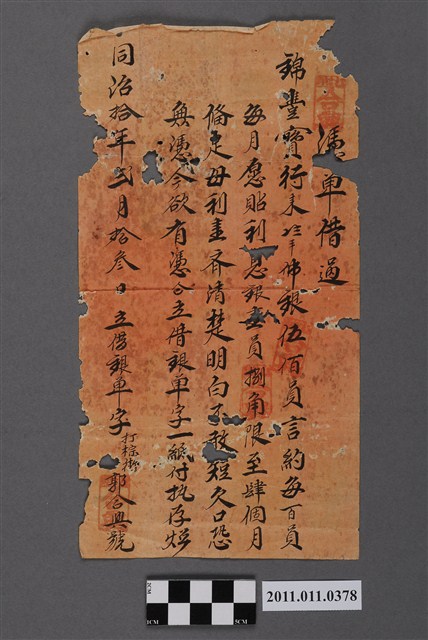 憑單借過
錦豊寶行來平佛銀伍佰員言約每百員
每月愿貼利息銀員捌角限至肆個月
備足母利齊清楚明白不敢短欠口恐
無憑今欲有憑合立借銀單字一紙付执存炤
同治拾年弍月拾叁日立借銀單字打棕街郭合興號
2CM
1CM
5CM
2011.011.0378